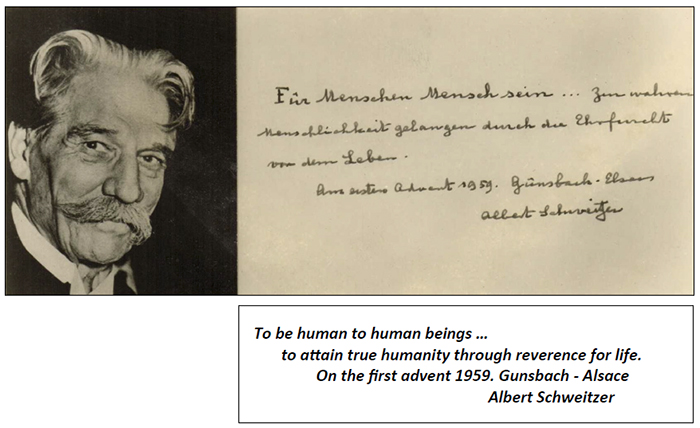 Für Menschen Mensch sein ... Zur wahren
Menschlichkeit gelangen durch die Ehrfurcht
vor dem Leben.
Am ersten Advent 1959. Günsbach - Elsass
Albert Schweitzer
To be human to human beings ...
to attain true humanity through reverence for life.
On the first advent 1959. Gunsbach - Alsace
Albert Schweitzer